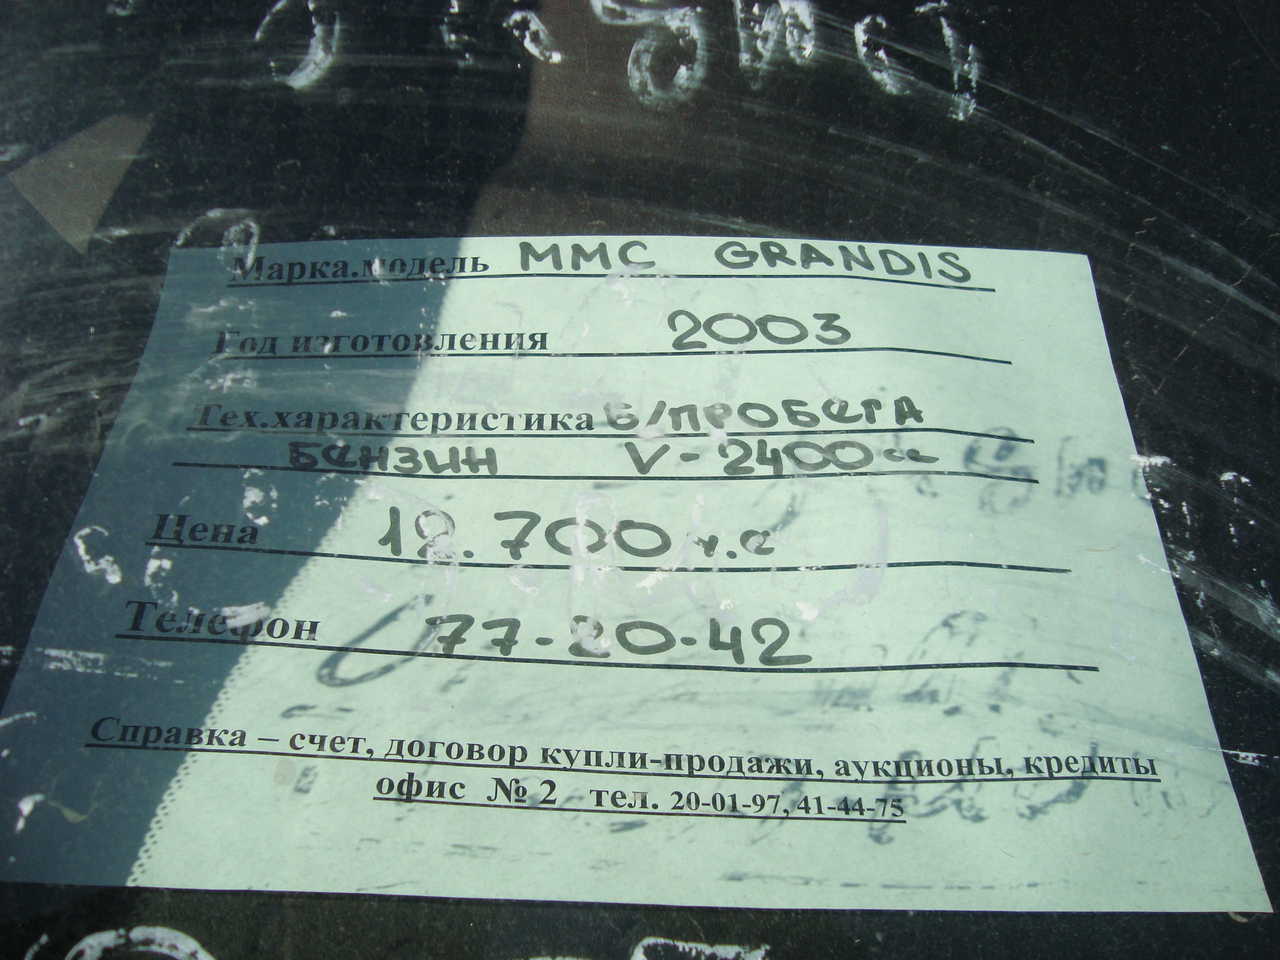 Марка.модель MMC GRANDIS
Год изготовления 2003
Тех.характеристика Б/ПРОБЕГА
БЕНЗИН V-2400сс
Цена 18.700 у.е
Телефон 77-20-42
Справка – счет, договор купли-продажи, аукционы, кредиты
офис № 2 тел. 20-01-97, 41-44-75